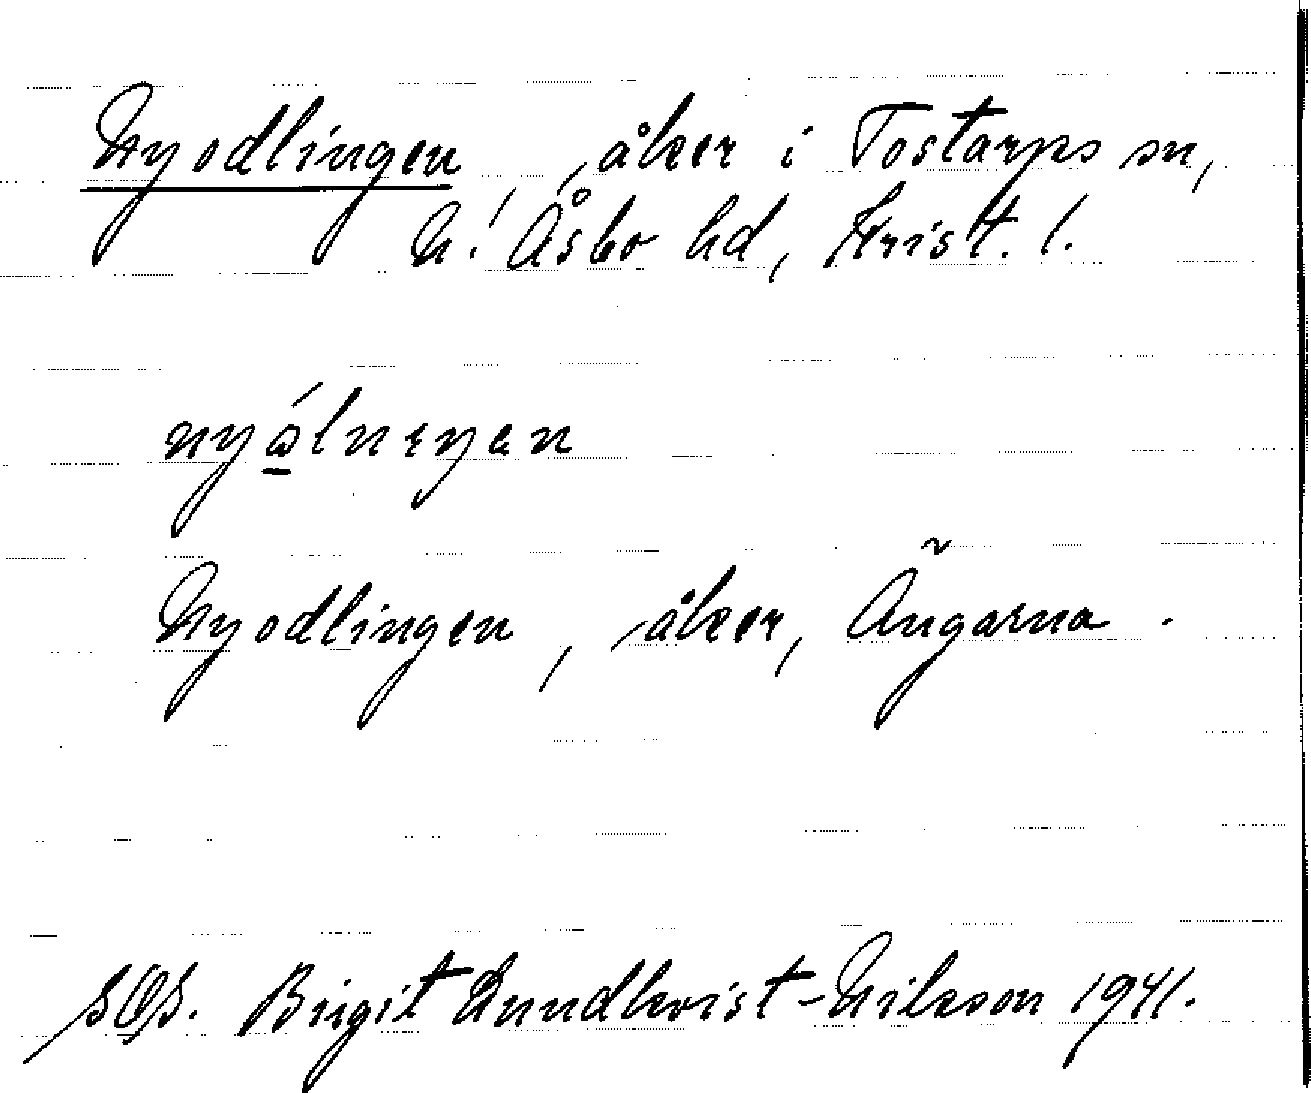 Nyodlingen, åker i Tostarps sn,
N. Åsbo hd, Krist. l.
Nyodlingen, åker, Ängarna.
Birgit Lundkvist-Nilsson 1941.